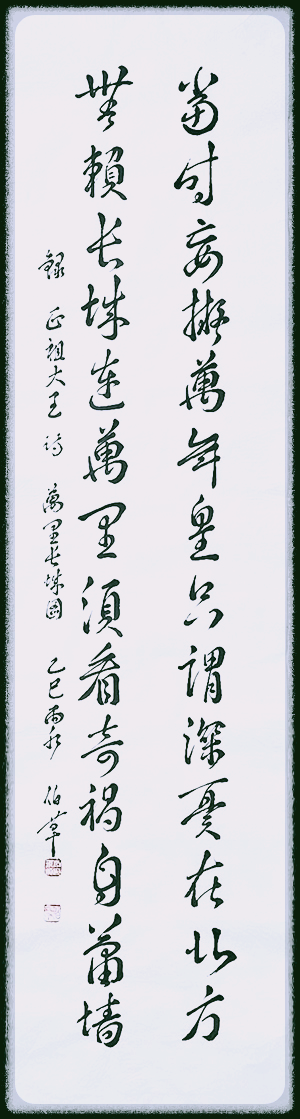 當時妄擬萬年皇只謂深憂在北方
無賴长城連萬里須看奇禍自蕭墻
錄 正祖大王 詩 萬里长城圖 乙巳雨水 伯草